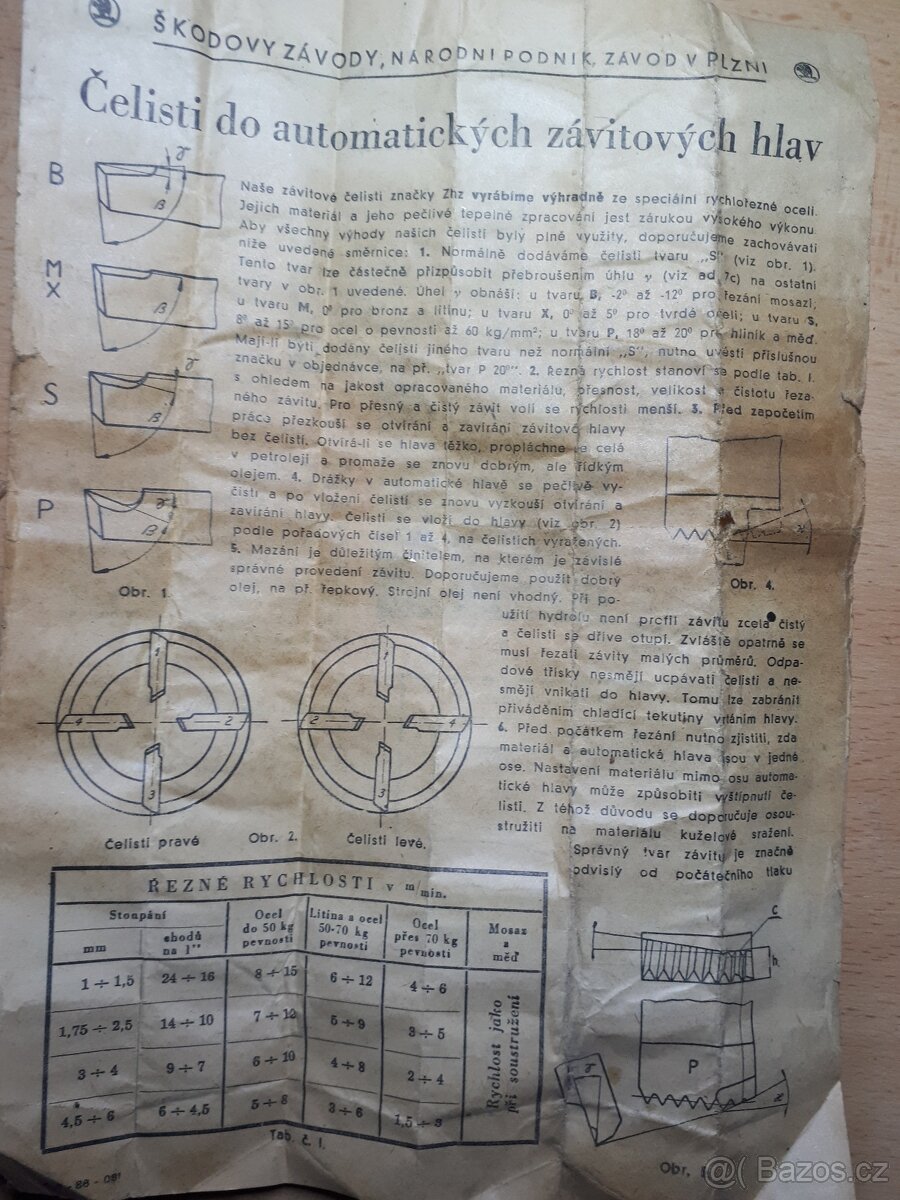 ŠKODOVY ZÁVODY, NÁRODNÍ PODNIK, ZÁVOD V PLZNI
Čelisti do automatických závitových hlav
B
γ
β
M
X
β
S
γ
β
P
γ
β
Obr. 1.
Naše závitové čelisti značky Zhz vyrábíme výhradně ze speciální rychlořezné oceli.
Jejich materiál a jeho pečlivé tepelné zpracování jest zárukou vysokého výkonu.
Aby všechny výhody našich čelistí byly plně využity, doporučujeme zachovávati
níže uvedené směrnice: 1. Normálně dodáváme čelisti tvaru „S" (viz obr. 1).
Tento tvar lze částečně přizpůsobit přebroušením úhlu γ (viz ad 7c) na ostatní
tvary v obr. 1 uvedené. Úhel γ obnáší: u tvaru B, -2° až -12° pro řezání mosazi;
u tvaru M, 0° pro bronz a litinu; u tvaru X, 0° až 5° pro tvrdé oceli; u tvaru S,
8° až 15° pro ocel o pevnosti až 60 kg/mm²; u tvaru P, 18° až 20° pro hliník a měď.
Mají-li býti dodány čelisti jiného tvaru než normální „S", nutno uvésti příslušnou
značku v objednávce, na př. „tvar P 20°". 2. Řezná rychlost stanoví se podle tab. I.
s ohledem na jakost opracovaného materiálu, přesnost, velikost a čistotu řeza-
ného závitu. Pro přesný a čistý závit volí se rychlosti menší. 3. Před započetím
práce přezkouší se otvírání a zavírání závitové hlavy
bez čelistí. Otvírá-li se hlava těžko, propláchne se celá
v petroleji a promaže se znovu dobrým, ale řídkým
olejem. 4. Drážky v automatické hlavě se pečlivě vy-
čistí a po vložení čelistí se znovu vyzkouší otvírání a
zavírání hlavy. Čelisti se vloží do hlavy (viz obr. 2)
podle pořadových čísel 1 až 4, na čelistích vyražených.
5. Mazání je důležitým činitelem, na kterém je závislé
správné provedení závitu. Doporučujeme použít dobrý
olej, na př. řepkový. Strojní olej není vhodný. Při po-
užití hydrolu není profil závitu zcela čistý
a čelisti se dříve otupí. Zvláště opatrně se
musí řezati závity malých průměrů. Odpa-
dové třísky nesmějí ucpávati čelisti a ne-
smějí vnikati do hlavy. Tomu lze zabrániti
přiváděním chladící tekutiny vrtáním hlavy.
6. Před počátkem řezání nutno zjistiti, zda
materiál a automatická hlava jsou v jedné
ose. Nastavení materiálu mimo osu automa-
tické hlavy může způsobiti vyštípnutí če-
listí. Z téhož důvodu se doporučuje osou-
stružiti na materiálu kuželové sražení.
Správný tvar závitu je značně
odvislý od počátečního tlaku
Obr. 4.
1
2
3
4
1
2
3
4
Čelisti pravé
Obr. 2.
Čelisti levé.
ŘEZNÉ RYCHLOSTI v m/min.
Stoupání
mm
chodů na 1"
Ocel do 50 kg pevnosti
Litina a ocel 50-70 kg pevnosti
Ocel přes 70 kg pevnosti
Mosaz a měď
1 ÷ 1,5 24 ÷ 16 8 ÷ 15 6 ÷ 12 4 ÷ 6
1,75 ÷ 2,5 14 ÷ 10 7 ÷ 12 5 ÷ 9 3 ÷ 5
3 ÷ 4 9 ÷ 7 6 ÷ 10 4 ÷ 8 2 ÷ 4
4,5 ÷ 6 6 ÷ 4,5 5 ÷ 8 3 ÷ 6 1,5 ÷ 3
Rychlost jako
při soustružení
Tab. č. I.
C
h
P
γ
Obr.
Bazos.cz